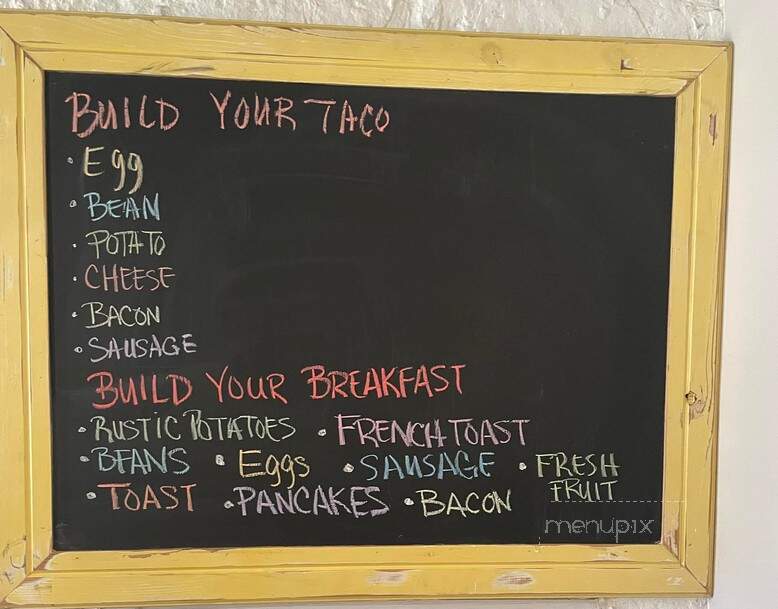 BUILD YOUR TACO
• Egg
• BEAN
• POTATO
• CHEESE
• BACON
• SAUSAGE
BUILD YOUR BREAKFAST
• RUSTIC POTATOES • FRENCH TOAST
• BEANS • Eggs • SAUSAGE • FRESH FRUIT
• TOAST • PANCAKES • BACON
menupix